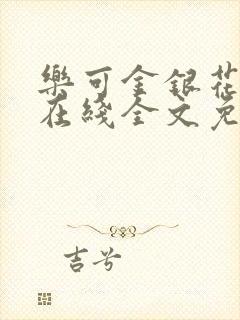 樂可金銀花
在綫全文免
吉兮